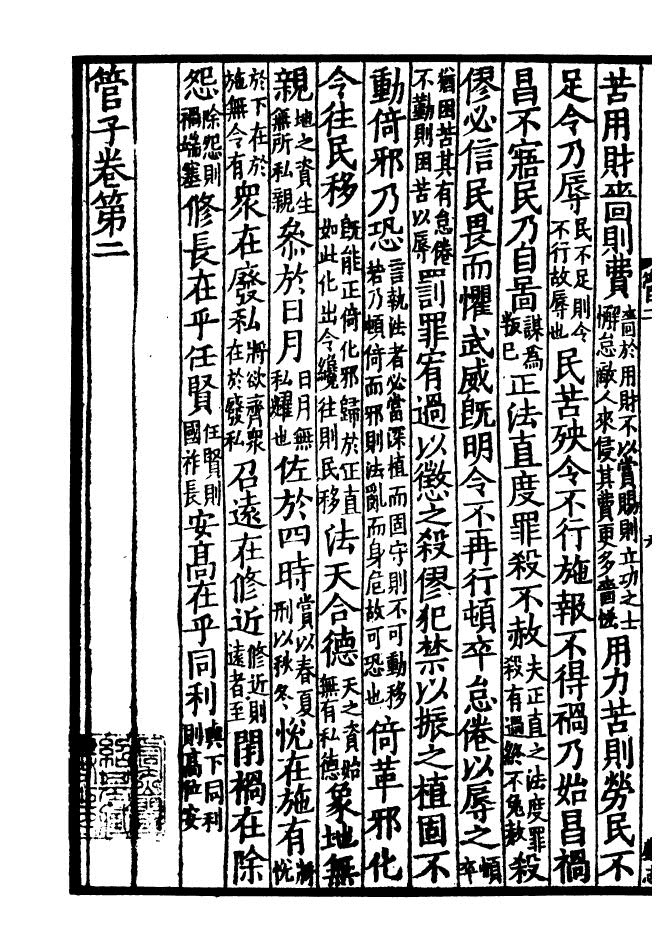 苦用財嗇則費嗇於用財不以賞賜則立功之士懈怠敵人來侵其費更多嗇悋用力苦則勞民不
足令乃辱民不足則令不行故辱也民苦殃令不行施報不得禍乃始昌禍
昌不寤民乃自啚謀為叛已正法直度罪殺不赦夫正直之法度罪殺有過終不免赦殺
僇必信民畏而懼武威既明令不再行頓卒怠倦以辱之頓卒
猶困苦其有怠倦不勤則困苦以辱罰罪宥過以懲之殺僇犯禁以振之植固不
動倚邪乃恐言執法者必當深植而固守則不可動移若乃頓倚而邪則法亂而身危故可恐也倚革邪化
令往民移既能正倚化邪歸於正直如此化出令纔往則民移法天合德天之資始無有私德象地無
親地之資生無所私親參於日月日月無私耀也佐於四時賞以春夏刑以秋冬悅在施有將悅
於下在於施無令有衆在廢私將欲齊衆在於發私召遠在修近修近則遠者至閉禍在除
怨除怨則禍端塞修長在乎任賢任賢則國祚長安高在乎同利與下同利則高位安
管子卷第二